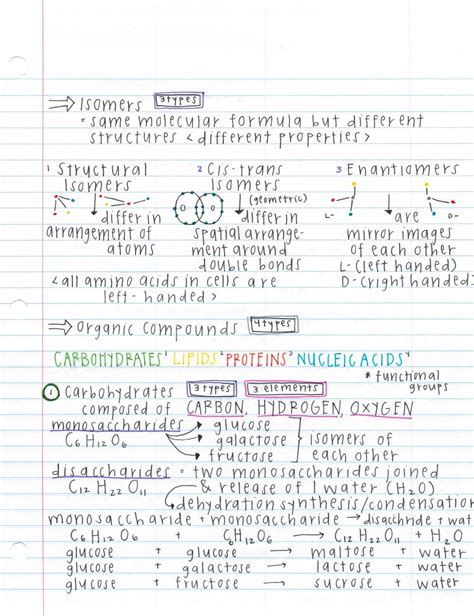 ⇒ Isomers 3 types
= same molecular formula but different
structures <different properties>
1 Structural Isomers
2 Cis-trans Isomers (geometric)
3 Enantiomers
differ in arrangement of atoms
differ in spatial arrangement around double bonds
L- D-
are mirror images of each other
L-(left handed)
D-(right handed)
<all amino acids in cells are
left-handed>
⇒ Organic Compounds 4 types
CARBOHYDRATES¹ LIPIDS² PROTEINS³ NUCLEIC ACIDS⁴
* functional groups
1 Carbohydrates 3 types 3 elements
composed of CARBON, HYDROGEN, OXYGEN
monosaccharides → glucose
C6H12O6 → galactose
→ fructose
isomers of each other
disaccharides = two monosaccharides joined
C12H22O11 & release of 1 water (H2O)
→ dehydration synthesis/condensation
monosaccharide + monosaccharide → disacchride + wat
C6H12O6 + C6H12O6 → C12H22O11 + H2O
glucose + glucose → maltose + water
glucose + galactose → lactose + water
glucose + fructose → sucrose + water